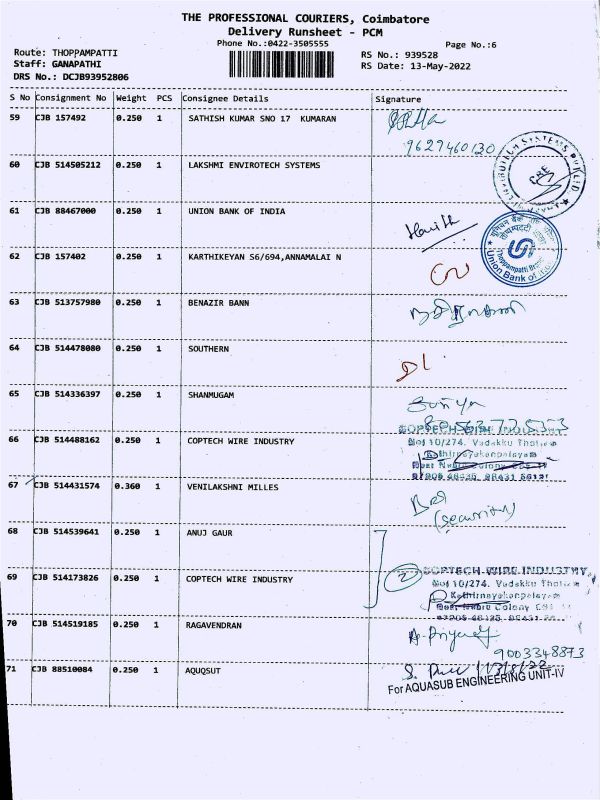 THE PROFESSIONAL COURIERS, Coimbatore
Delivery Runsheet - PCM
Phone No.:0422-3505555
Page No.:6
Route: THOPPAMPATTI
Staff: GANAPATHI
DRS No.: DCJB93952806
RS No.: 939528
RS Date: 13-May-2022
S No Consignment No Weight PCS Consignee Details Signature
59 CJB 157492 0.250 1 SATHISH KUMAR SNO 17 KUMARAN
9627460130
60 CJB 514505212 0.250 1 LAKSHMI ENVIROTECH SYSTEMS
61 CJB 88467000 0.250 1 UNION BANK OF INDIA
Union Bank of
62 CJB 157402 0.250 1 KARTHIKEYAN S6/694,ANNAMALAI N
63 CJB 513757980 0.250 1 BENAZIR BANN
64 CJB 514478080 0.250 1 SOUTHERN
65 CJB 514336397 0.250 1 SHANMUGAM
66 CJB 514488162 0.250 1 COPTECH WIRE INDUSTRY
No: 10/274. Vadakku
67 CJB 514431574 0.360 1 VENILAKSHNI MILLES
(security)
68 CJB 514539641 0.250 1 ANUJ GAUR
69 CJB 514173826 0.250 1 COPTECH WIRE INDUSTRY
2
COPTECH WIRE INDUSTRY
No: 10/274. Vadakku
Kathirnayakanpalayam
70 CJB 514519185 0.250 1 RAGAVENDRAN
9003348873
71 CJB 88510084 0.250 1 AQUQSUT
For AQUASUB ENGINEERING UNIT-IV